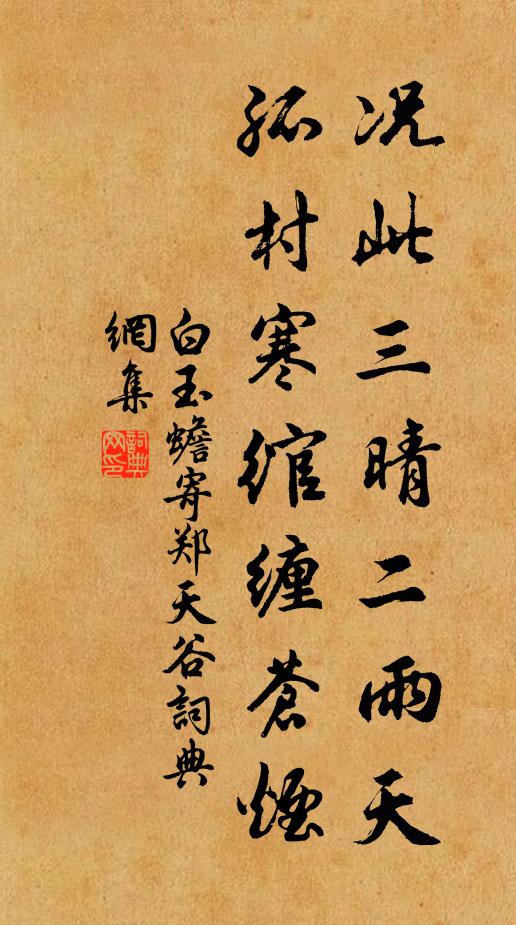 况此三晴二雨天
孤村寒綰纏蒼煙
白玉蟾寄郑天谷詞典
網集
詞典
网印